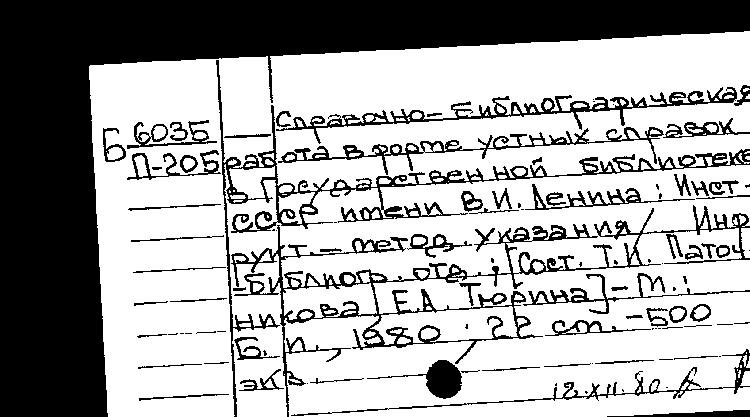 Б 6035
П-205
Справочно-библиографическая
работа в форме устных справок
в Государственной библиотеке
СССР имени В.И. Ленина: Инст-
рукт.-метод. указания / Инф.
-библиогр. отд.; [Сост. Т.И. Паточ-
никова, Е.А. Тюрина].- М.:
Б. и., 1980. 22 ст. -500
экз.
12.XII.80